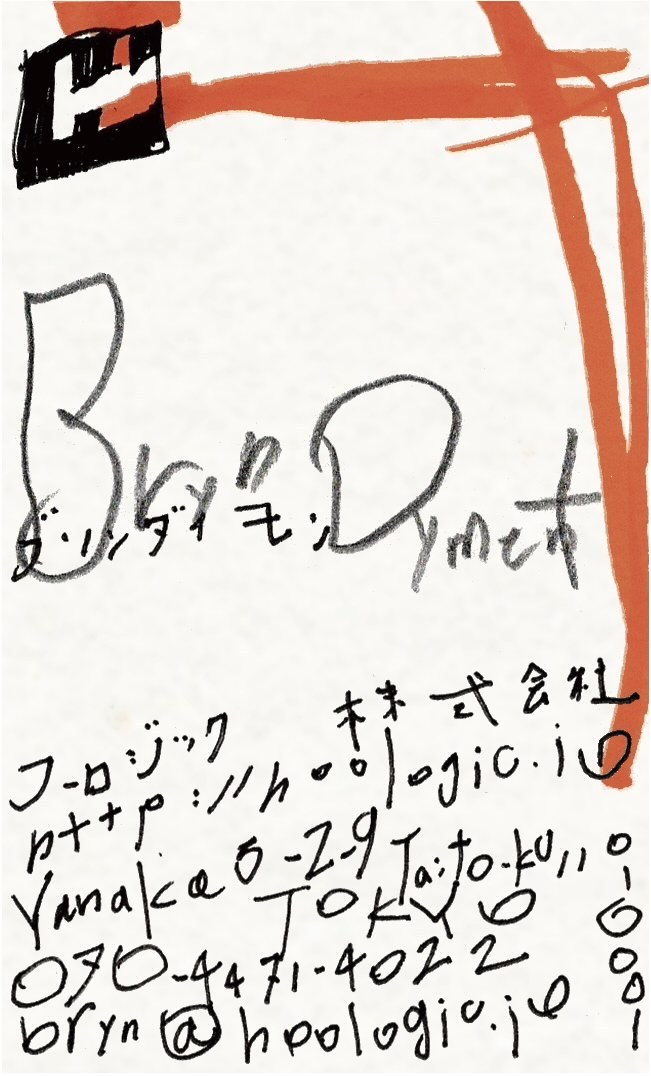 Bryn Dyment
ブリン ダイモン
株式会社
フーロジック
http://hoologic.io
Yanaka 5-2-9 Taito-ku 110
Tokyo 0001
070-4471-4022
bryn@hoologic.io